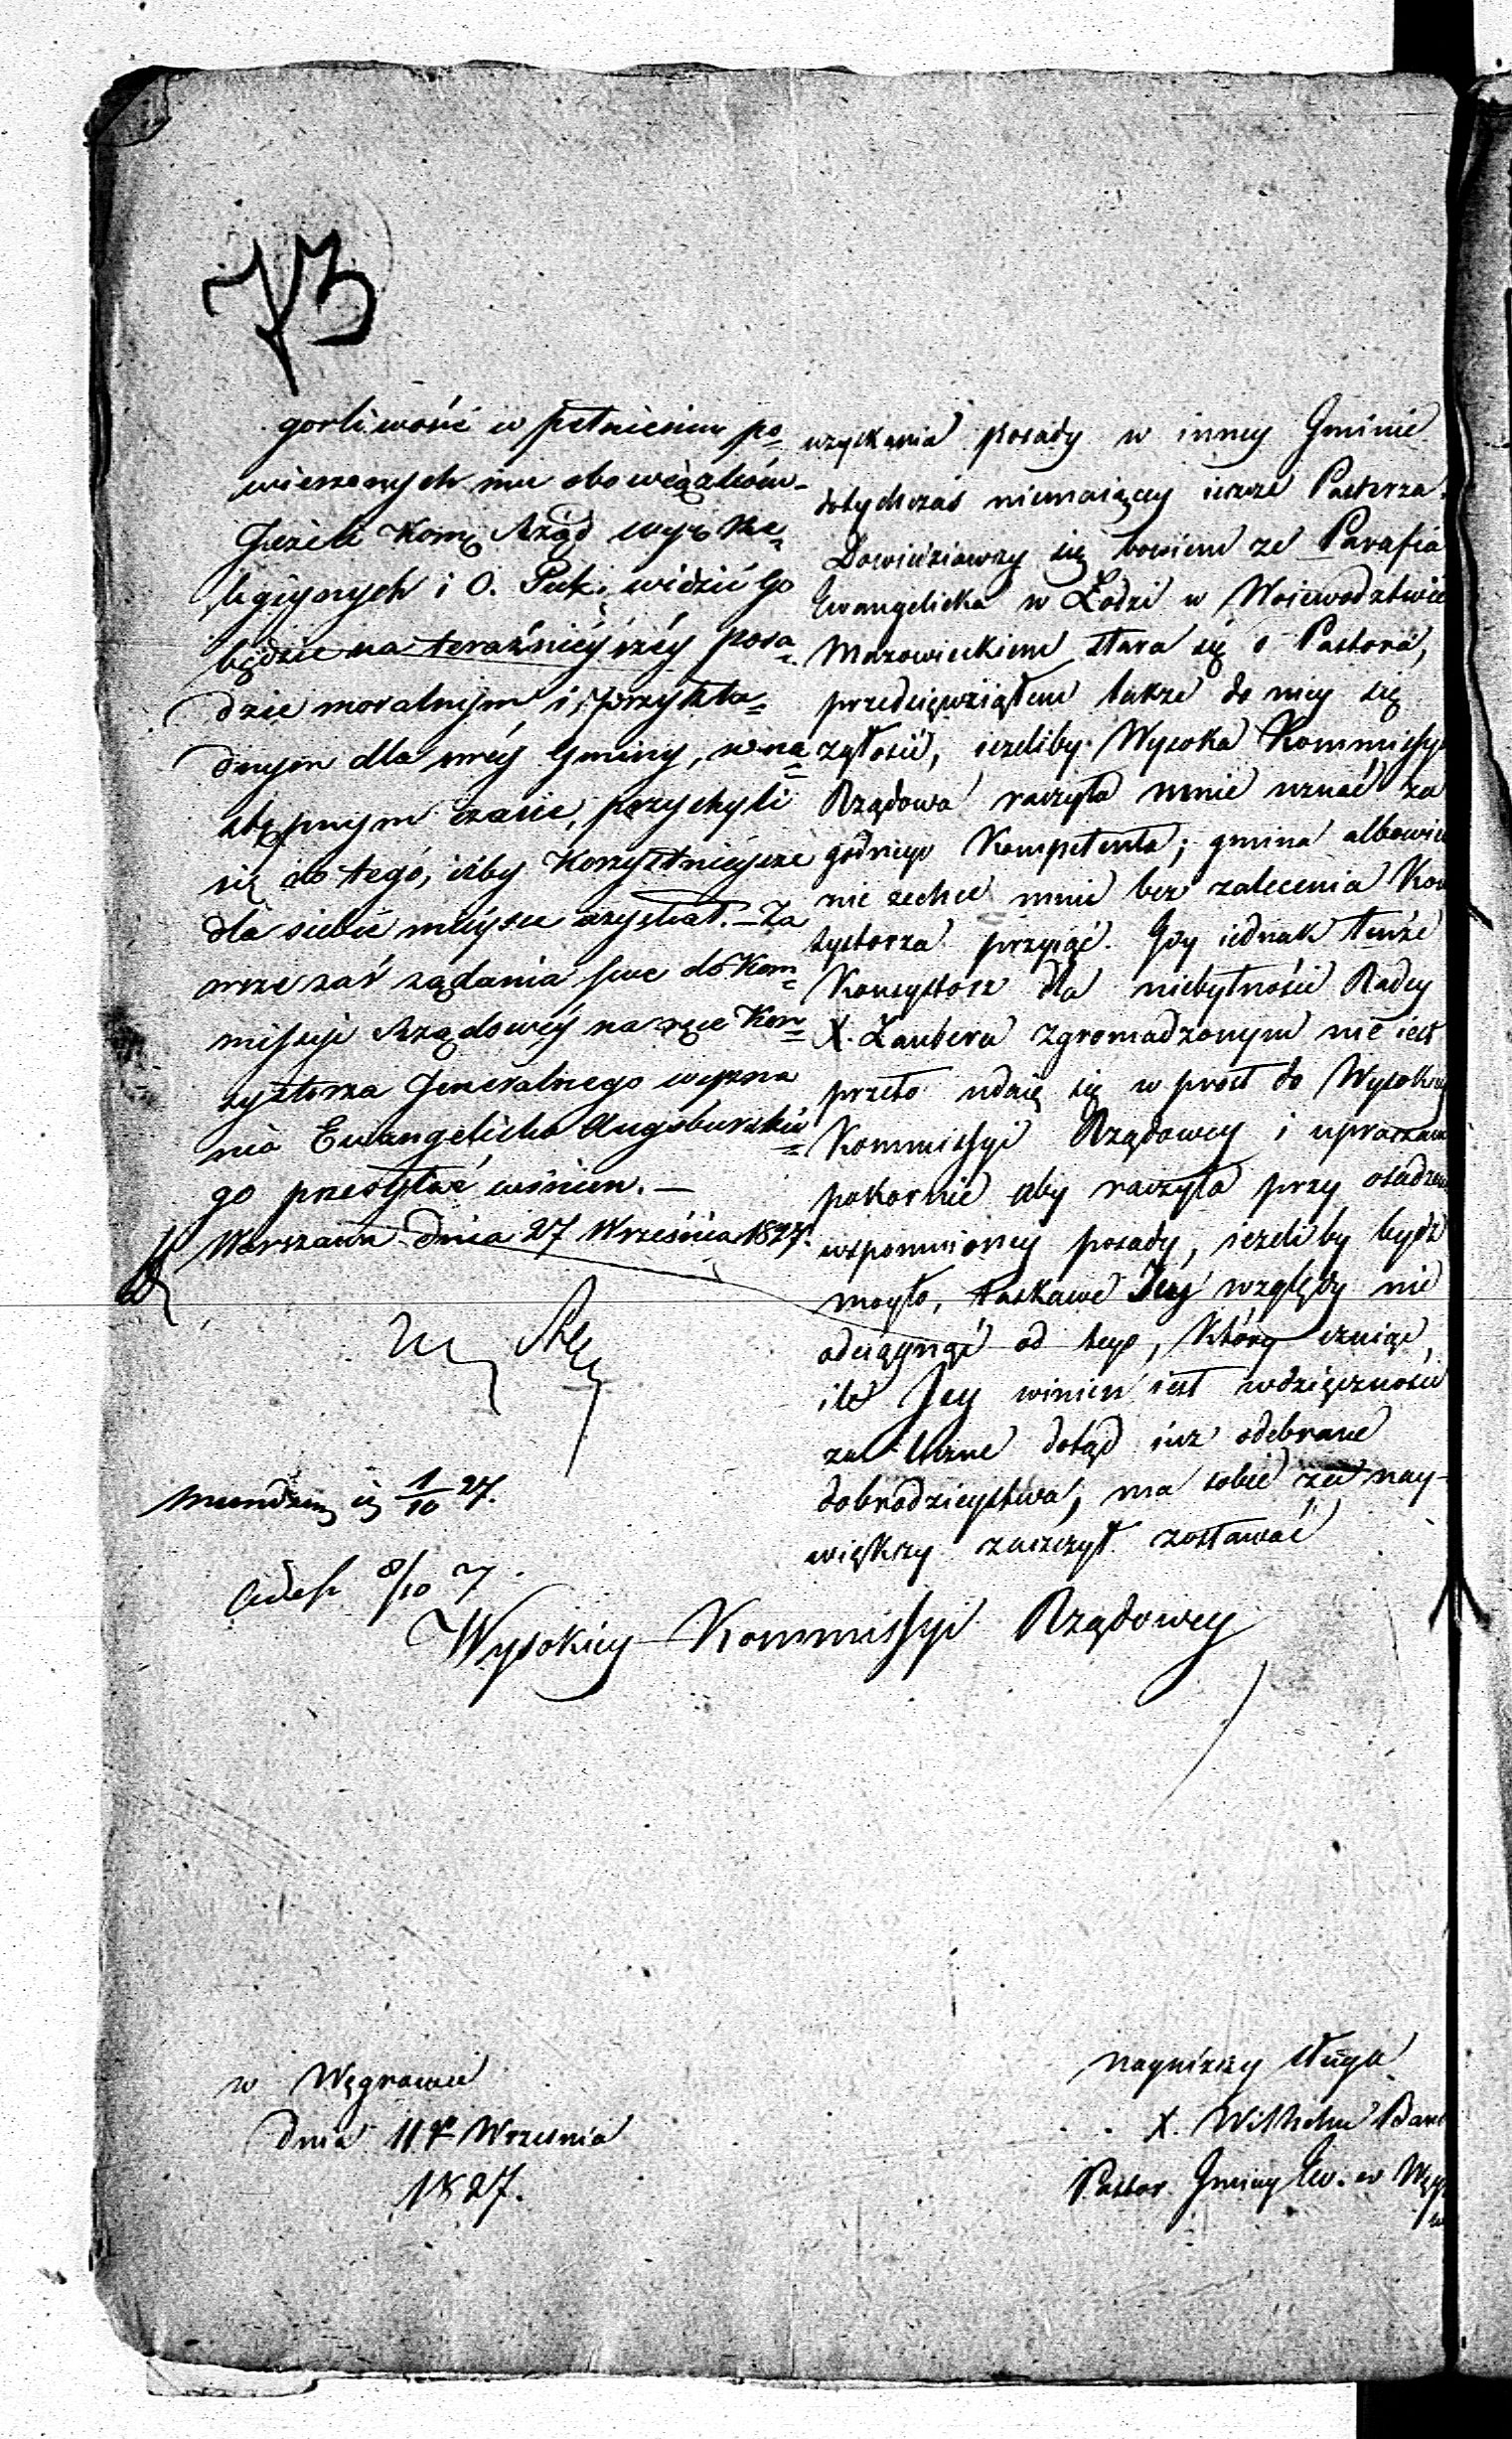 73
gorliwość w pełnieniu po=
wierzonych mu obowiązków.
Jeżeli Kom: Rząd wyz: Re=
ligijnych i O. Pub: widzić go
będzie na teraźnieyszéy posa=
dzie moralnym i przykła=
dnym dla swéy Gminy, w na=
stępnym czasie, przychyli
się do tego, iżby korzystnieysze
dla siebie mieysce uzyskał. – Za
wsze zaś żądania swe do Kom=
missyi Rządowéy na ręce Kon=
systorza Generalnego wyzna
nia Ewangelicko Augsburskie=
go przesyłać winien. –
Warszawa dnia 27 Września 1827.
1/10 27.
8/10 7
uzyskania posady w inney Gminie
dotychczas niemaiącey ieszcze Pasterza.
Dowiedziawszy się bowiem że Parafia
Ewangelicka w Łodzi w Woiewodztwie
Mazowieckiem stara się o Pastora,
przedsięwziąłem także do niey się
zgłosić, ieżeliby Wysoka Kommissya
Rządowa raczyła mnie uznać za
godnego Kompetenta; gmina albowiem
nie zechce mnie bez zalecenia Kon
systorza przyiąć. Gdy iednak tenże
Konsystorz dla niebytności Radcy
X. Laubera zgromadzonym nie iest
przeto udaię się w prost do Wysokiey
Kommissyi Rządowey i upraszam
pokornie aby raczyła przy osadzeniu
wspomnioney posady, ieżeliby bydź
mogło, łaskawe Jey względy nie
odciągnąć od tego, który czuiąc,
ile Jey winien iest wdzięczności
za liczne dotąd iuż odebrane
dobrodzieystwa, ma sobie za nay-
większy zaszczyt zostawać
Wysokiey Kommissyi Rządowey
w Węgrowie
dnia 11go Września
1827.
nayniższy sługa
X. Wilhelm
Pastor Gminy Ew. w